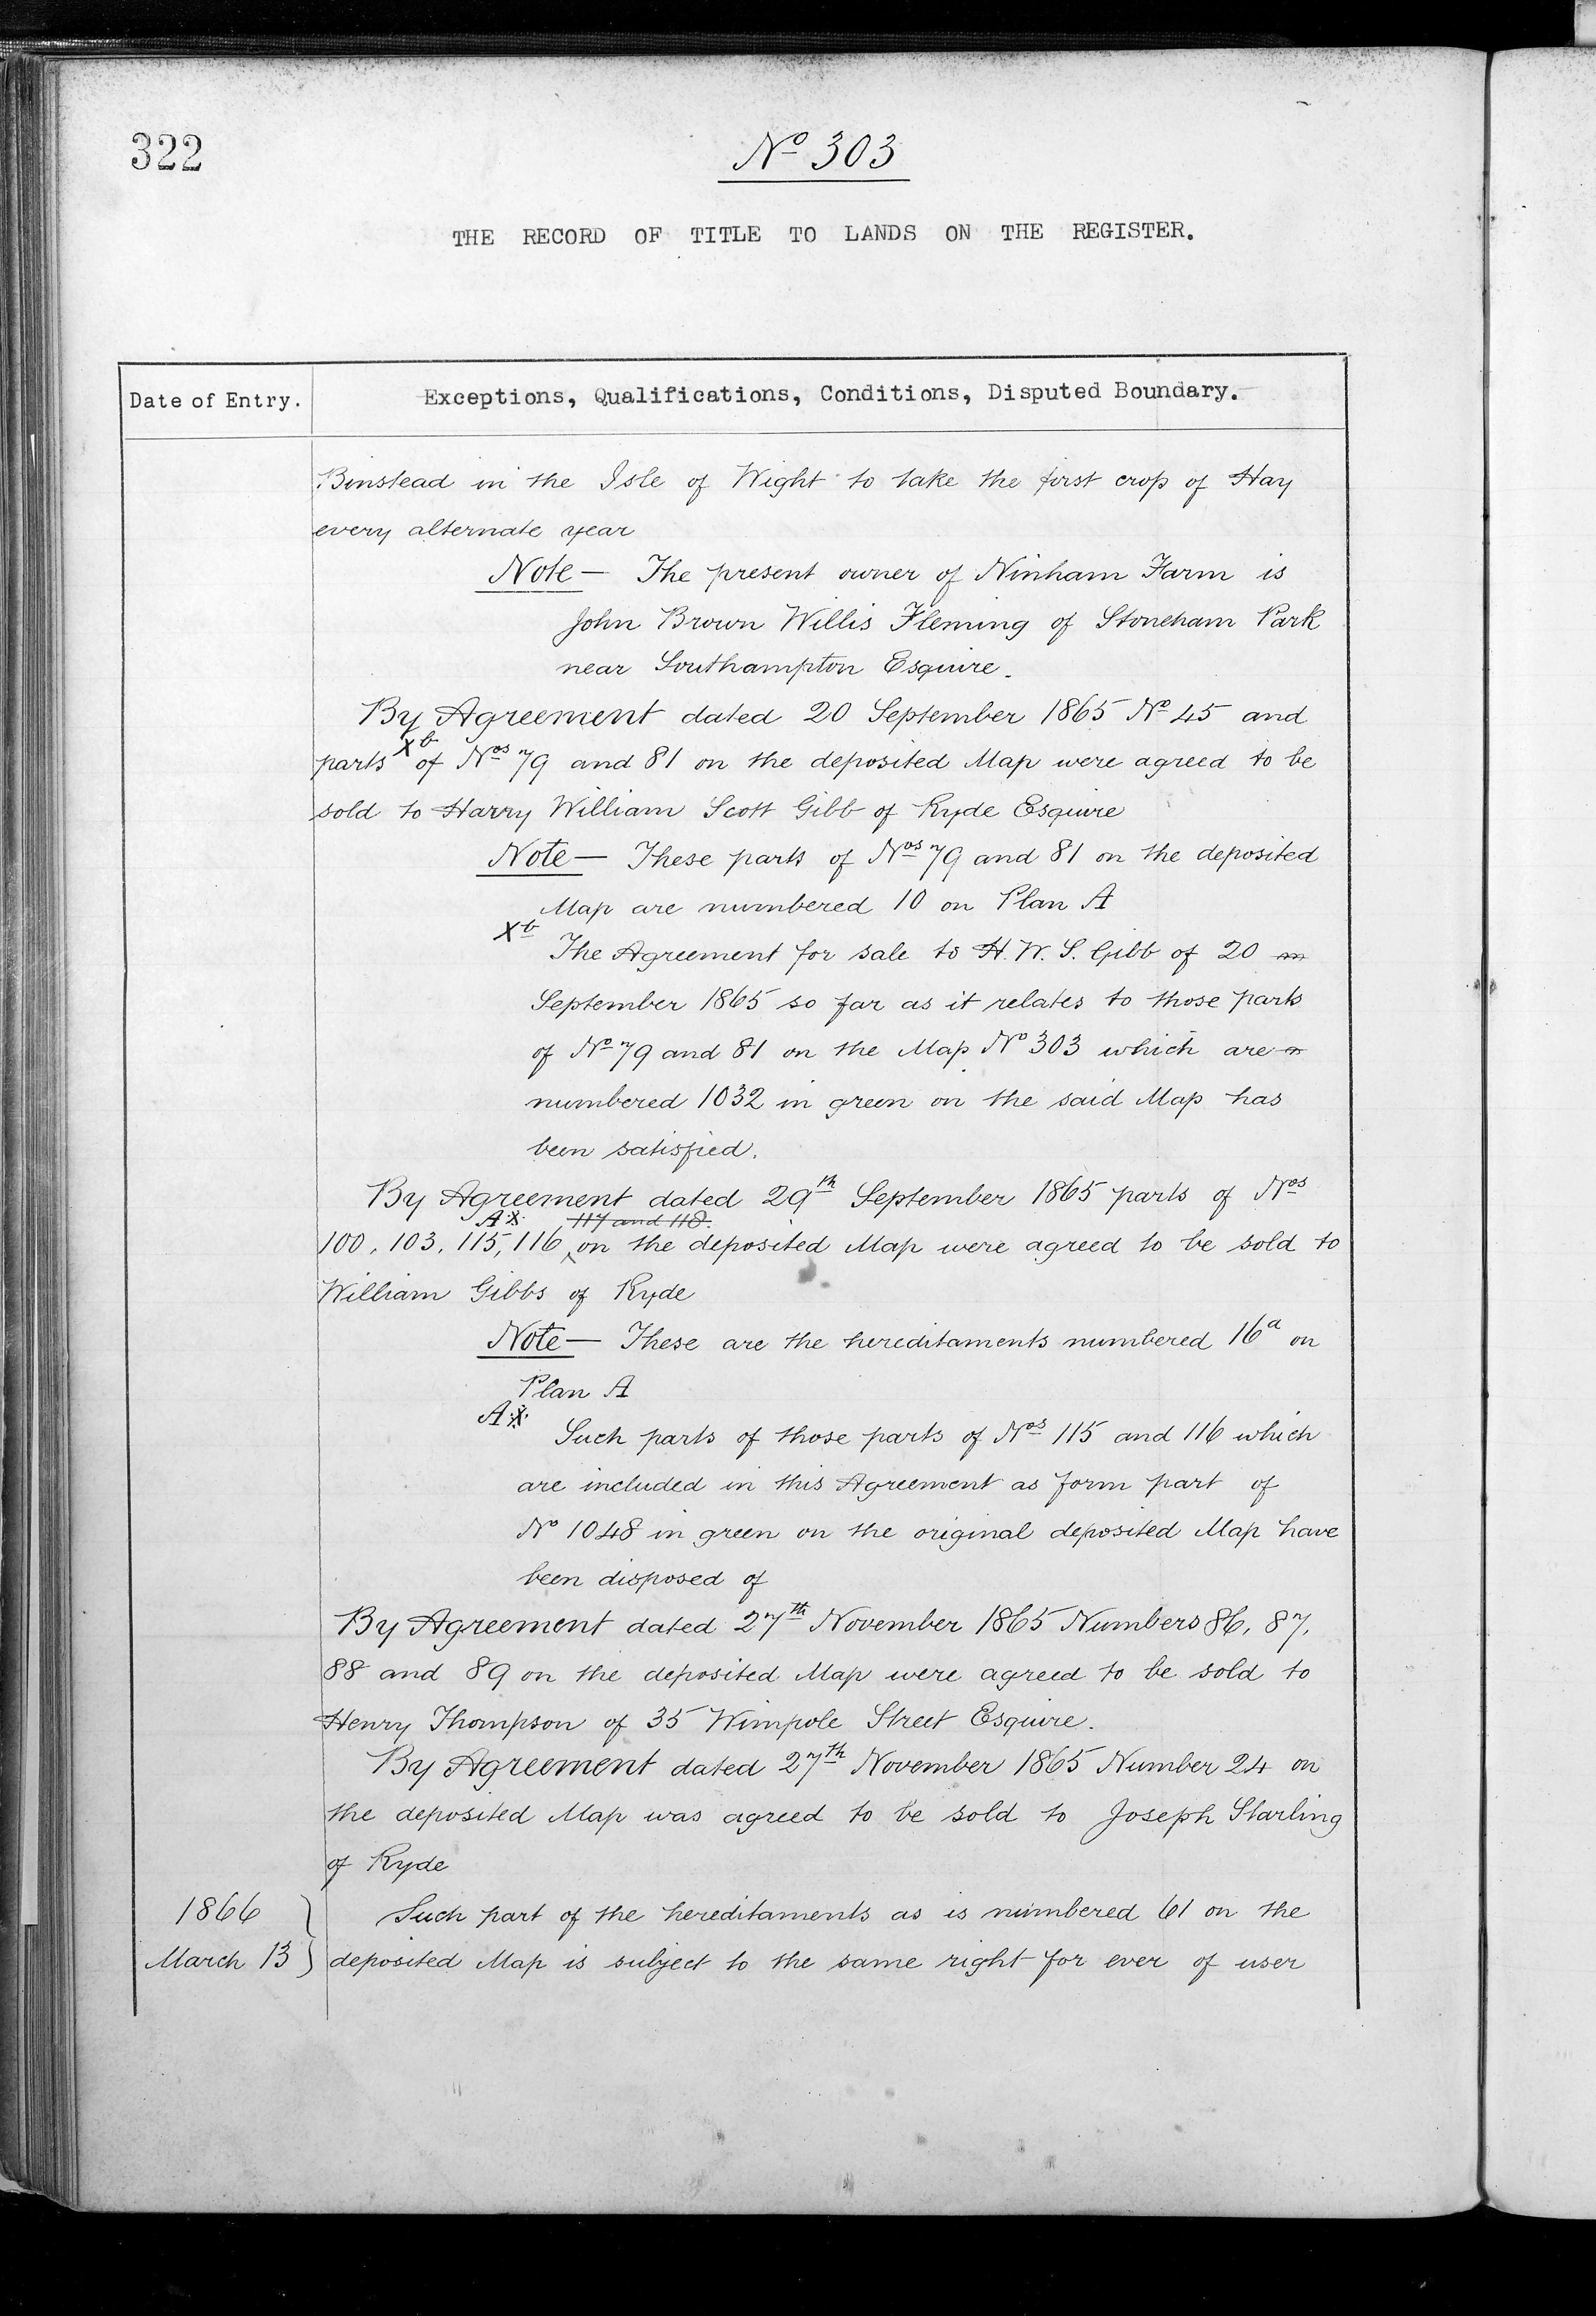 322
No 303
THE RECORD OF TITLE TO LANDS ON THE REGISTER.
Date of Entry.
Exceptions, Qualifications, Conditions, Disputed Boundary.
Binstead in the Isle of Wight to take the first crop of Hay
every alternate year
Note — The present owner of Ninham Farm is
John Brown Willis Fleming of Stoneham Park
near Southampton Esquire.
By Agreement dated 20 September 1865 No 45 and
parts Xb of Nos 79 and 81 on the deposited Map were agreed to be
sold to Harry William Scott Gibb of Ryde Esquire
Note — These parts of Nos 79 and 81 on the deposited
Map are numbered 10 on Plan A
Xb The Agreement for sale to H. W. S. Gibb of 20
September 1865 so far as it relates to those parts
of No 79 and 81 on the Map No 303 which are
numbered 1032 in green on the said Map has
been satisfied.
By Agreement dated 29th September 1865 parts of Nos
A※ 117 and 118.
100, 103, 115, 116 on the deposited Map were agreed to be sold to
William Gibbs of Ryde
Note — These are the hereditaments numbered 16a on
Plan A
A※ Such parts of those parts of Nos 115 and 116 which
are included in this Agreement as form part of
No 1048 in green on the original deposited Map have
been disposed of
By Agreement dated 27th November 1865 Numbers 86, 87,
88 and 89 on the deposited Map were agreed to be sold to
Henry Thompson of 35 Wimpole Street Esquire.
By Agreement dated 27th November 1865 Number 24 on
the deposited Map was agreed to be sold to Joseph Starling
of Ryde
1866 Such part of the hereditaments as is numbered 61 on the
March 13 deposited Map is subject to the same right for ever of user